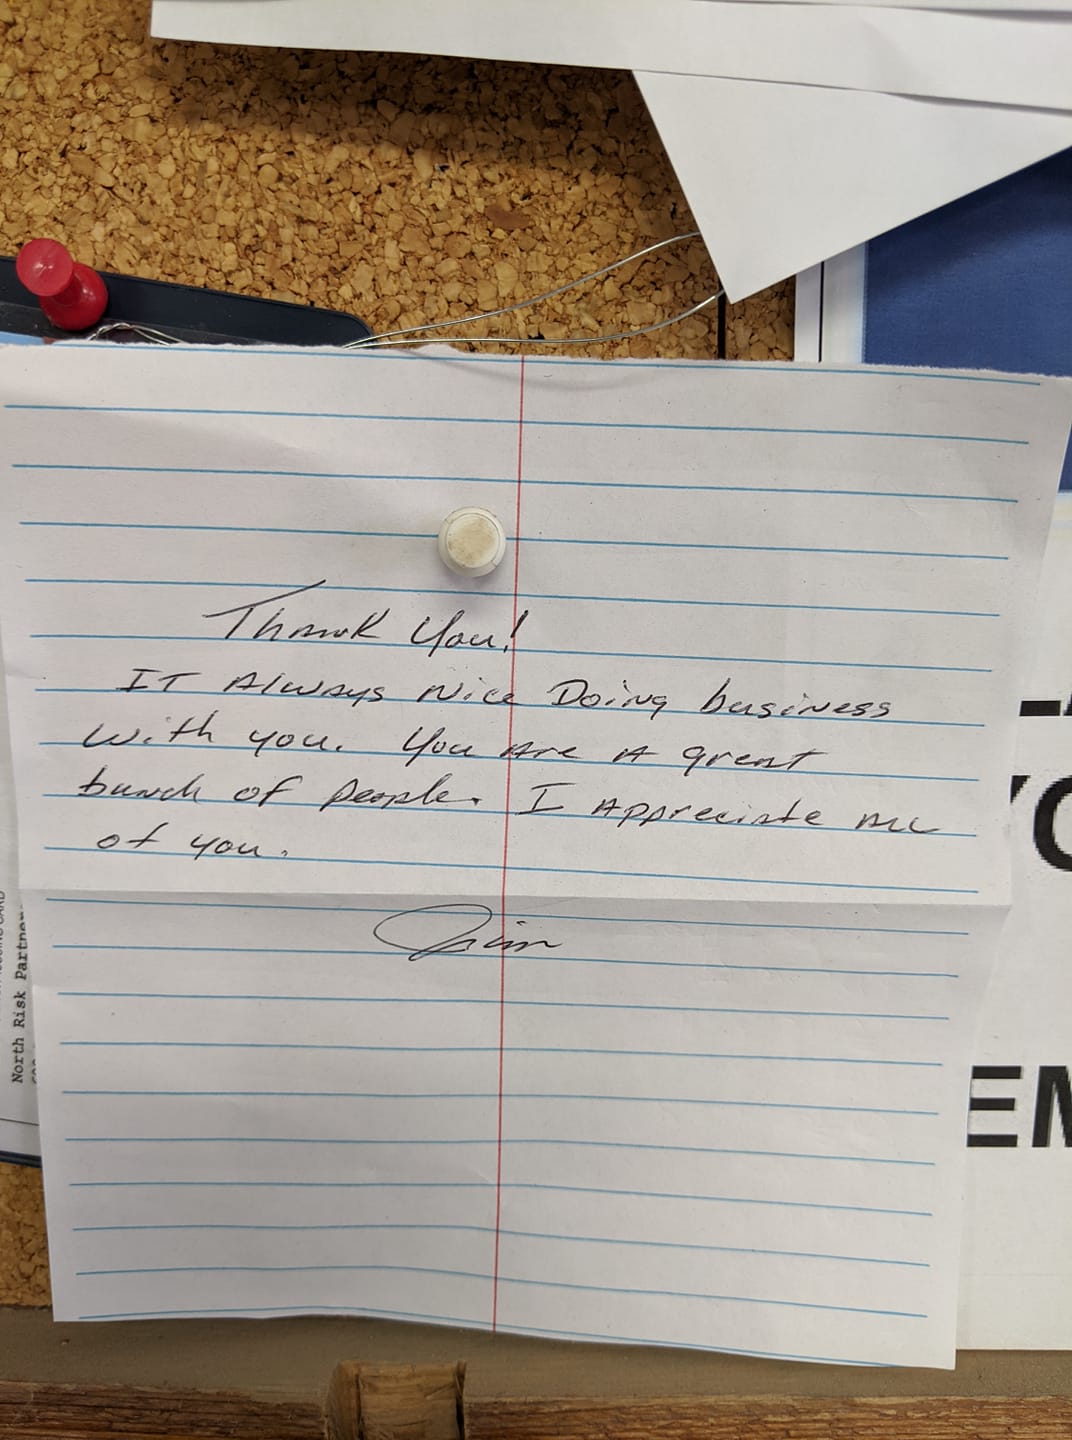 Thank You!
IT Always Nice Doing business
with you. You Are A great
bunch of people. I Appreciate ALL
of you.
Jim
North Risk Partner
EM